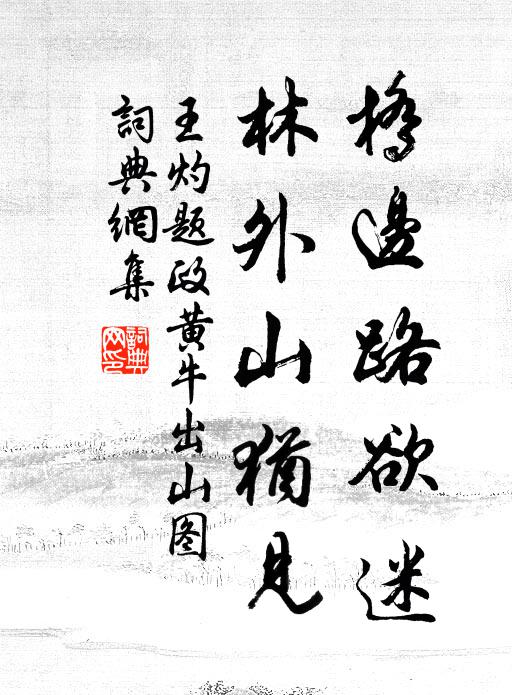 橋邊路欲迷
林外山猶見
王灼题政黄牛出山图
詞典網集
詞典网印